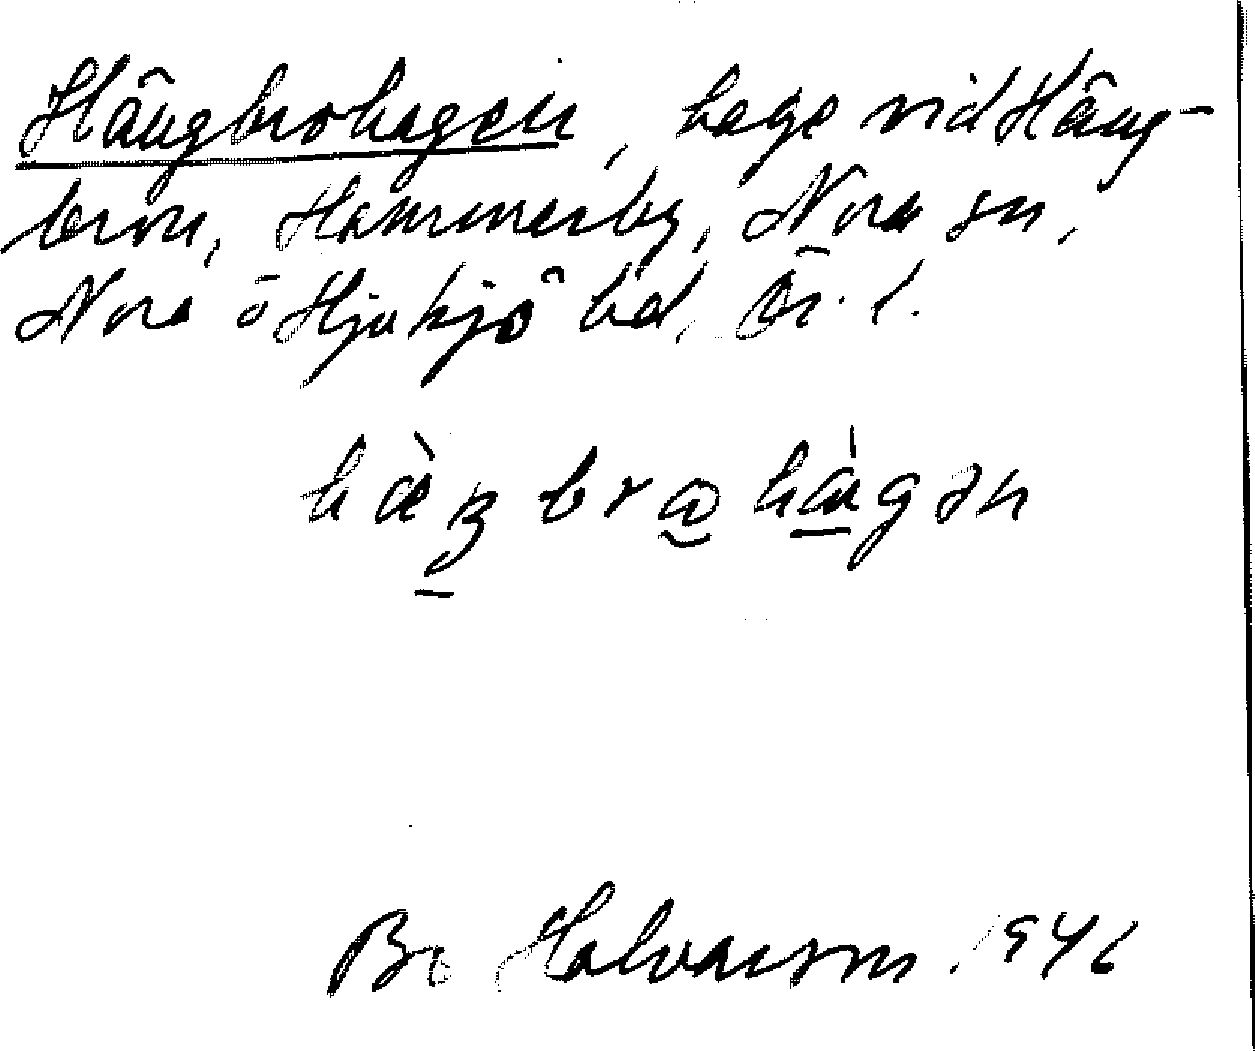 Hängbrohagen, hage vid Häng-
bron, Hammarby, Nora sn,
Nora o Hjulsjö hd, Ör. l.
hæ̀ŋbrɷhàgən
Bo Halvarson 1946